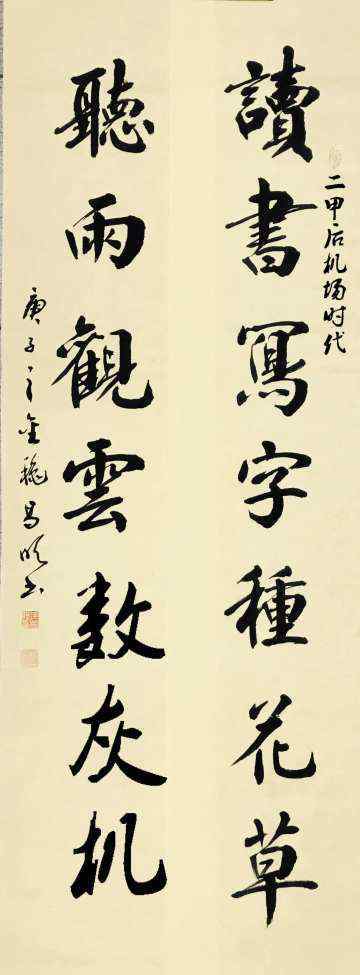 二甲后机场时代
讀書寫字種花草
聽雨觀雲数灰机
庚子之金秋易明书